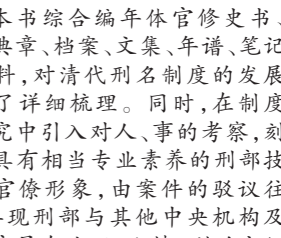 本书综合编年体官修史书、
典章、档案、文集、年谱、笔记
料，对清代刑名制度的发展
了详细梳理。同时，在制度
究中引入对人、事的考察，刻
具有相当专业素养的刑部技
官僚形象，由案件的驳议往
现刑部与其他中央机构及